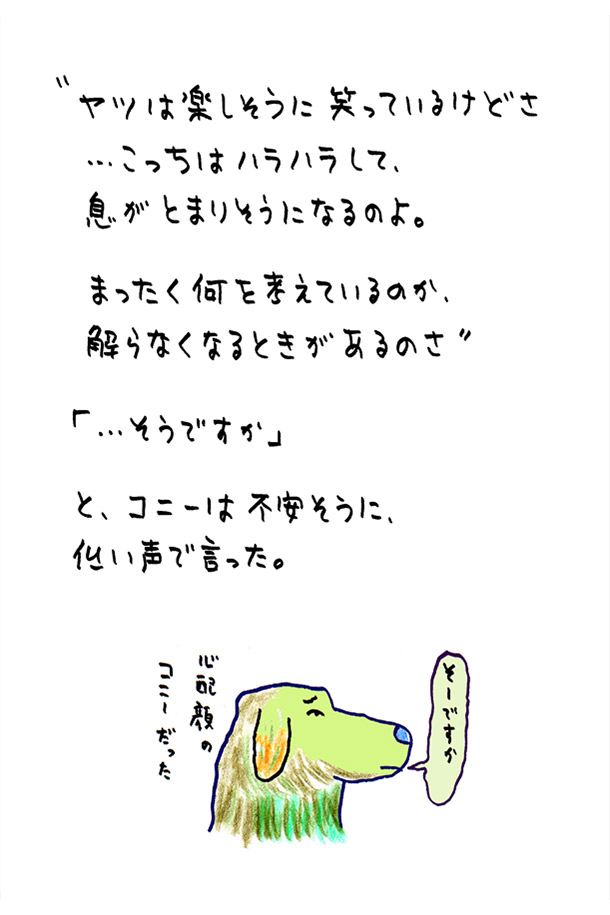 "ヤツは楽しそうに 笑っているけどさ
…こっちは ハラハラして、
息が とまりそうになるのよ。
まったく何を考えているのか、
解らなくなるときが あるのさ"
「…そうですか」
と、コニーは 不安そうに、
低い声で言った。
心配顔の
コニーだった
そーですか